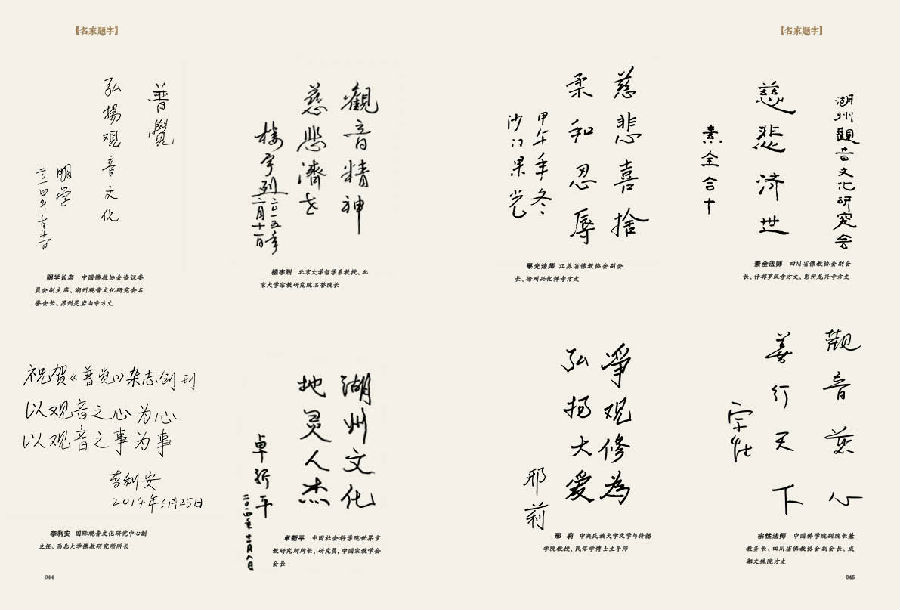 【名家题字】
普覺
弘揚观音文化
明学
觀音精神
慈悲濟世
楼宇烈
二〇一五年
六月十一日
明学长老 中国佛教协会咨议委
员会副主席、湖州观音文化研究会名
誉会长、苏州灵岩山寺方丈
楼宇烈 北京大学哲学系教授、北
京大学宗教研究院名誉院长
祝贺《普觉》杂志创刊
以观音之心为心
以观音之事为事
李利安
湖州文化
地灵人杰
卓新平
李利安 国际观音文化研究中心创
主任、西北大学佛教研究所所长
卓新平 中国社会科学院世界宗
教研究所所长、研究员,中国宗教学会
会长
044
【名家题字】
慈悲喜捨
柔和忍辱
甲午年冬
湖州觀音文化研究会
慈悲济世
素全合十
江苏省佛教协会副会
素全法师 四川省佛教协会副会
淨观修为
弘扬大爱
邢莉
觀音慈心
善行天下
宗性
邢 莉 中央民族大学文学与传播
学院教授、民俗学博士生导师
宗性法师 中国佛学院副院长兼
教务长、四川省佛教协会副会长、成
都文殊院方丈
045